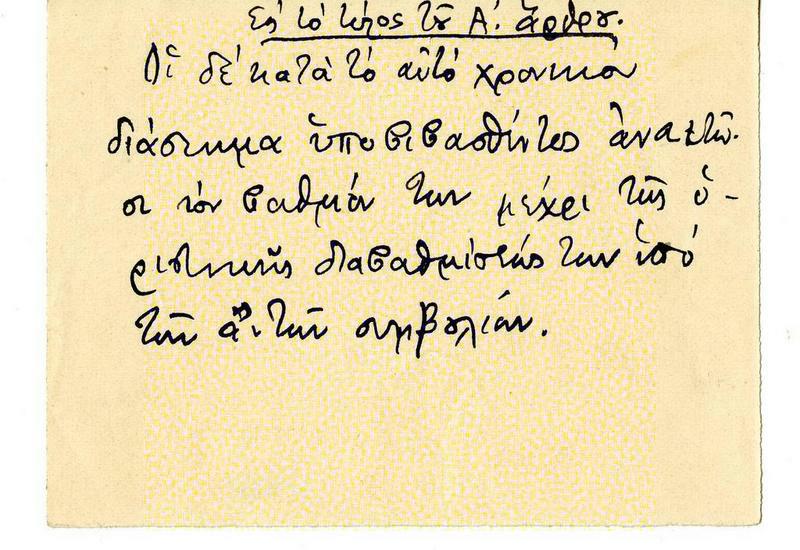 Εἰς τὸ τέλος τοῦ Α. ἄρθρου.
Οἱ δὲ κατὰ τὸ αὐτὸ χρονικὸν
διάστημα ὑποβιβασθέντες ἀνακτῶ-
σι τὸν βαθμόν των μέχρι τῆς ὁ-
ριστικῆς διαβαθμίσεώς των ὑπό
τῶν συμβουλίων.